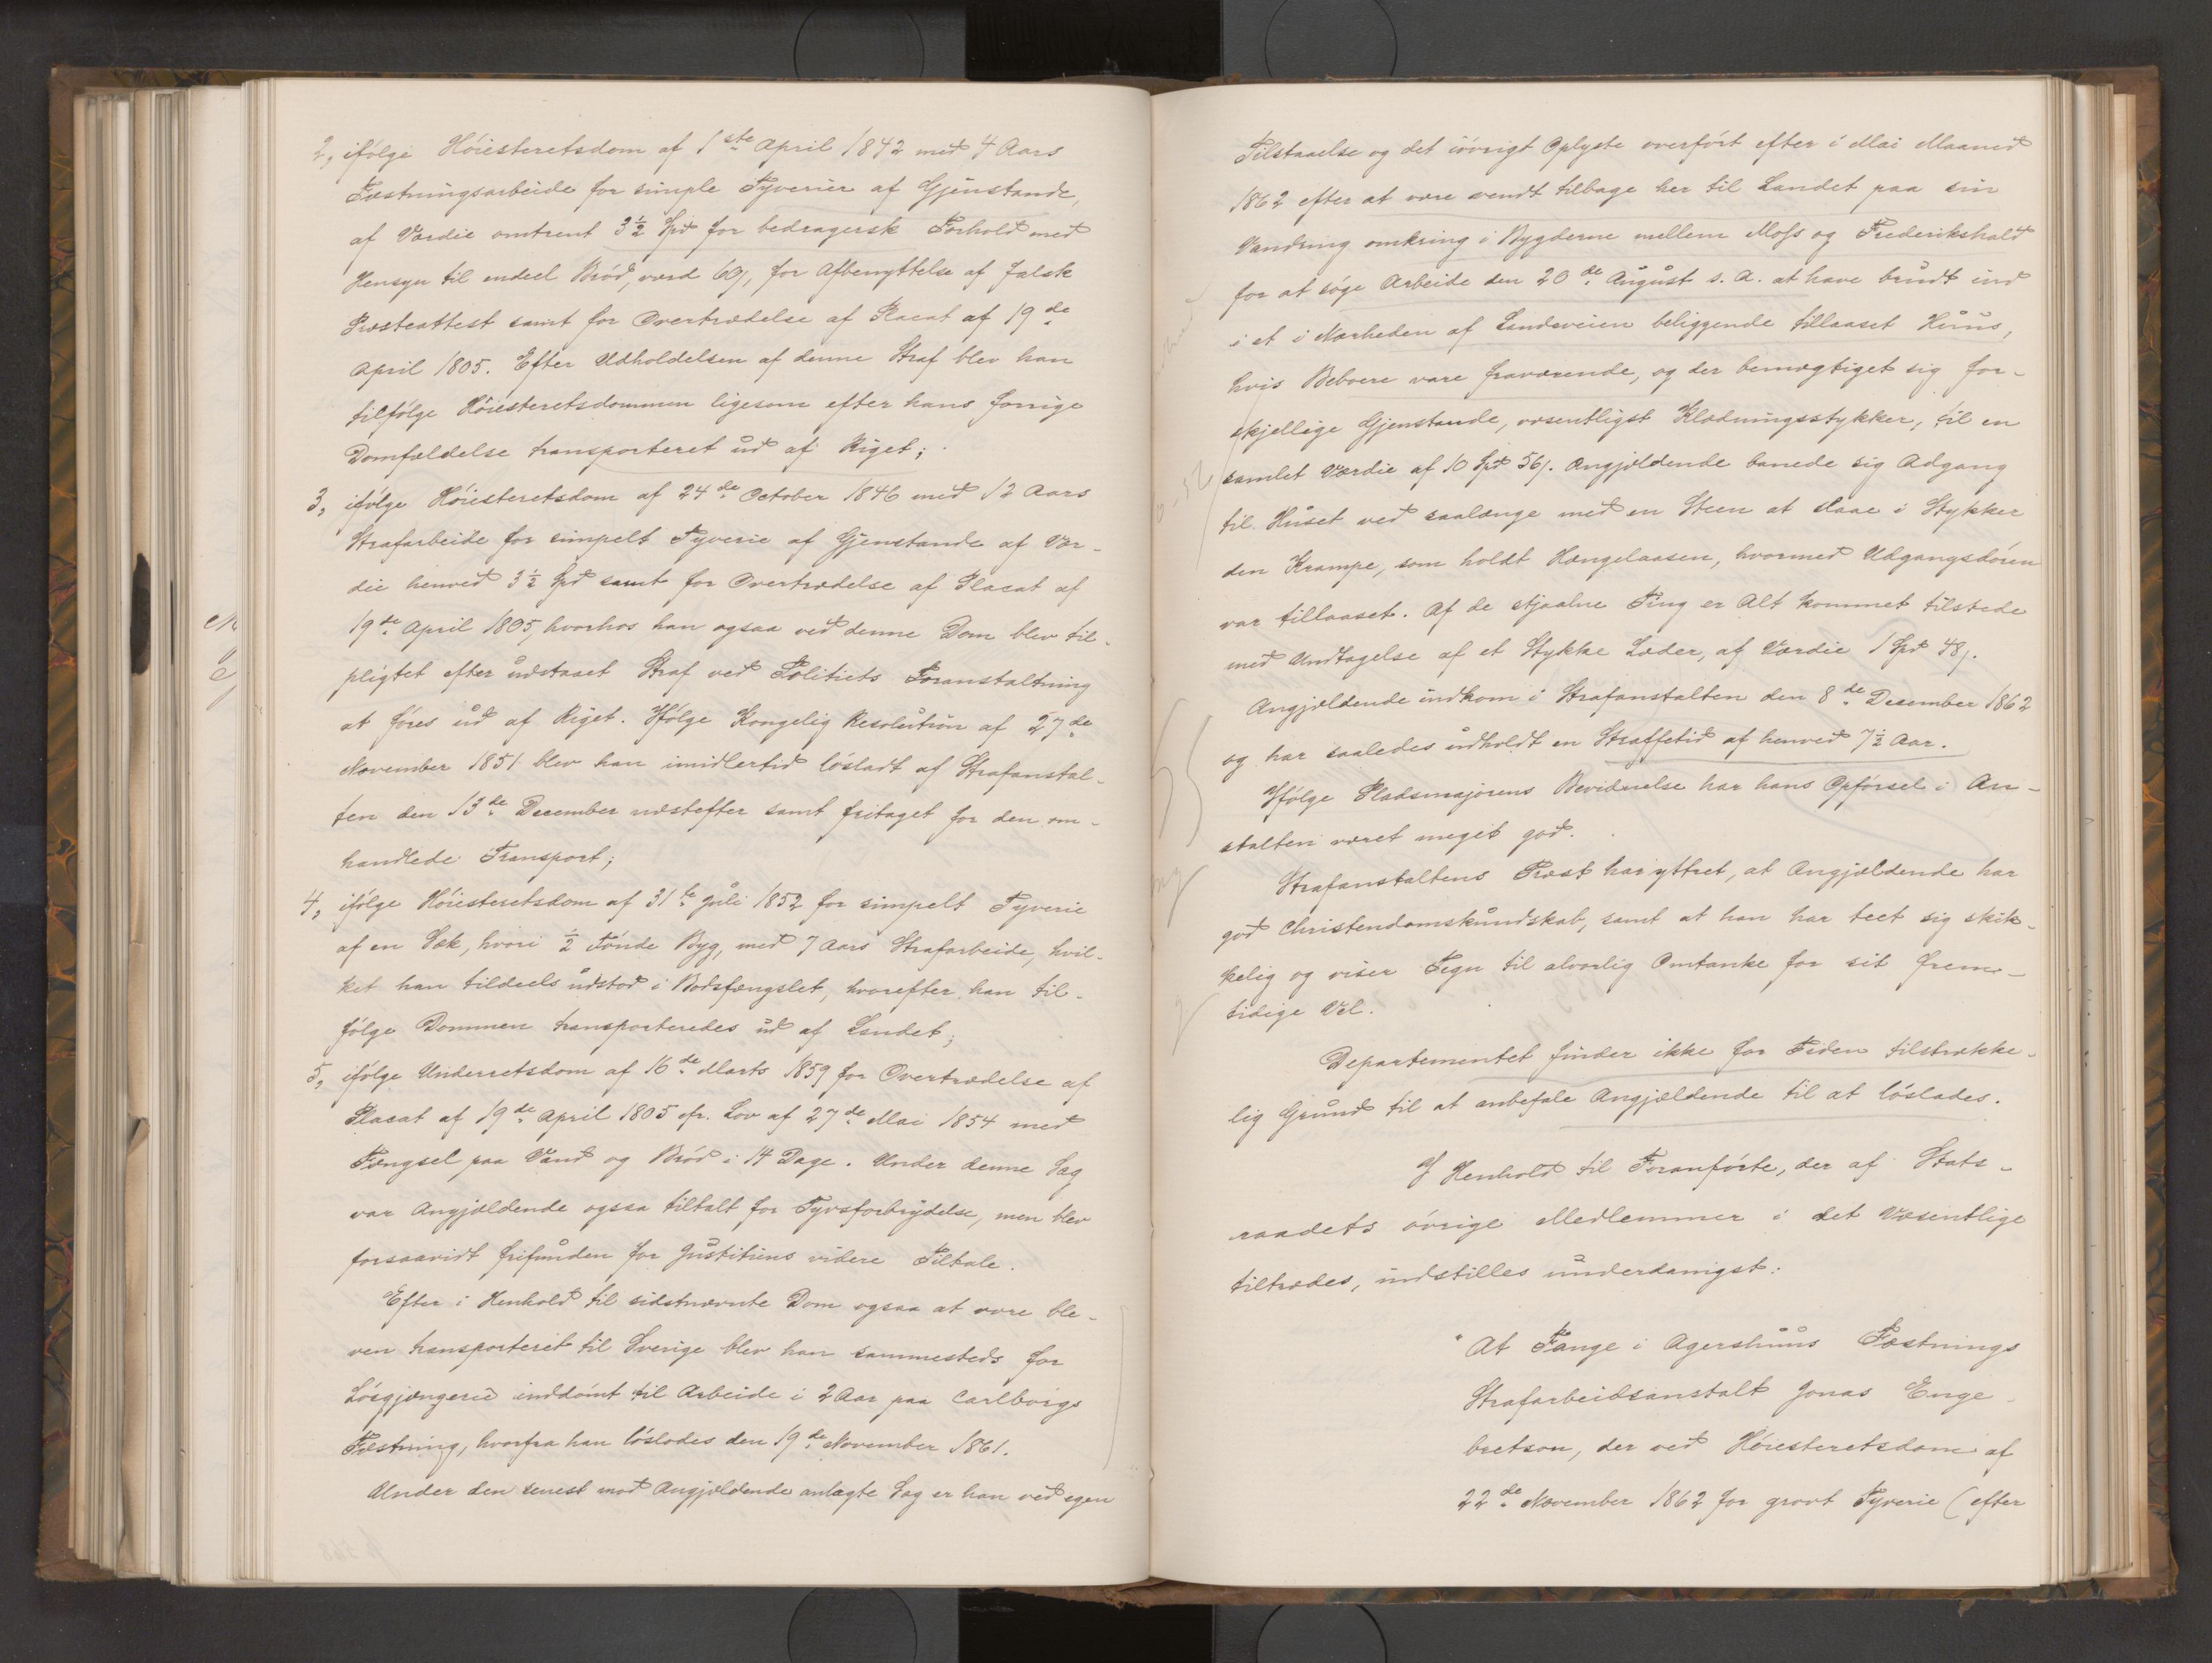 2, ifølge Høiesteretsdom af 1ste April 1842 med 4 Aars
Fæstningsarbeide for simple Tyverier af Gjenstande,
af Værdie omtrent 3½ Spd for bedragersk Forhold med
Hensyn til endeel Brød, værd 60ß, for Afbenyttelse af falsk
Præsteattest samt for Overtrædelse af Placat af 19de
April 1805. Efter Udholdelsen af denne Straf blev han
tilfølge Høiesteretsdommen ligesom efter hans forrige
Domfældelse transporteret ud af Riget;
3, ifølge Høiesteretsdom af 24de October 1846 med 12 Aars
Strafarbeide for simpelt Tyverie af Gjenstande af Vær-
die henved 3½ Spd samt for Overtrædelse af Placat af
19de April 1805, hvorhos han ogsaa ved denne Dom blev til-
pligtet efter udstaaet Straf ved Politiets Foranstaltning
at føres ud af Riget. Ifølge Kongelig Resolution af 27de
November 1851 blev han imidlertid løsladt af Strafanstal-
ten den 13de December næstefter samt fritaget for den om-
handlede Transport;
4, ifølge Høiesteretsdom af 31te Juli 1852 for simpelt Tyverie
af en Sæk, hvori ½ Tønde Byg, med 7 Aars Strafarbeide, hvil-
ket han tildeels udstod i Bodsfængslet, hvorefter han til-
følge Dommen transporteredes ud af Landet;
5, ifølge Underretsdom af 16de Marts 1859 for Overtrædelse af
Placat af 19de April 1805 cfr. Lov af 27de Mai 1854 med
Fængsel paa Vand og Brød i 14 Dage. Under denne Sag
var Angjældende ogsaa tiltalt for Tyvsforbrydelse, men blev
forsaavidt frifunden for Justitiens videre Tiltale.
Efter i Henhold til sidstnævnte Dom ogsaa at være ble-
ven transporteret til Sverige blev han sammesteds for
Løsgjængerie inddømt til Arbeide i 2 Aar paa Carlborgs
Fæstning, hvorfra han løslodes den 19de November 1861.
Under den senest mod Angjældende anlagte Sag er han ved egen
Tilstaaelse og det iøvrigt Oplyste overført efter i Mai Maaned
1862 efter at være vendt tilbage her til Landet paa sin
Vandring omkring i Bygderne mellem Moss og Frederikshald
for at søge Arbeide den 20de August s. A. at have brudt ind
i et i Nærheden af Landeveien beliggende tillaaset Huus,
hvis Beboere vare fraværende, og der bemægtiget sig for-
skjellige Gjenstande, væsentligst Klædningsstykker, til en
samlet Værdie af 10 Spd 56ß. Angjældende banede sig Adgang
til Huset ved saalænge med en Steen at slaae i Stykker
den Krampe, som holdt Hængelaasen, hvormed Udgangsdøren
var tillaaset. Af de stjaalne Ting er Alt kommet tilstede
med Undtagelse af et Stykke Læder, af Værdie 1 Spd 48ß.
Angjældende indkom i Strafanstalten den 8de December 1862
og har saaledes udholdt en Straffetid af henved 7½ Aar.
Ifølge Pladsmajorens Bevidnelse har hans Opførsel i An-
stalten været meget god.
Strafanstaltens Præst har yttret, at Angjældende har
god Christendomskundskab, samt at han har teet sig skik-
kelig og viser Tegn til alvorlig Omtanke for sit frem-
tidige Vel.
Departementet finder ikke for Tiden tilstrække-
lig Grund til at anbefale Angjældende til at løslades.
I Henhold til Foranførte, der af Stats-
raadets øvrige Medlemmer i det Væsentlige
tiltrædes, indstilles underdanigst:
"At Fange i Agershuus Fæstnings
Strafarbeidsanstalt Jonas Enge-
bretson, der ved Høiesteretsdom af
22de November 1862 for grovt Tyverie (efter